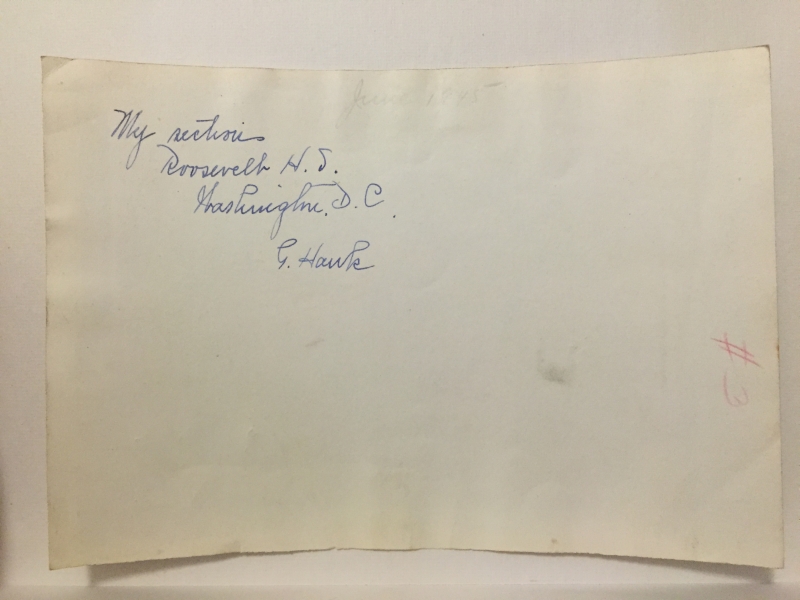 June 1945
My sections
Roosevelt H. S.
Washington, D. C.
G. Hawk
#3